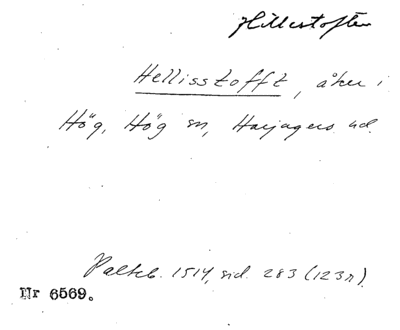 Hillestoften
Hellisstofft, åker i
Hög, Hög sn, Harjagers hd.
Palteb. 1514, sid. 283 (123r).
Nr 6569.